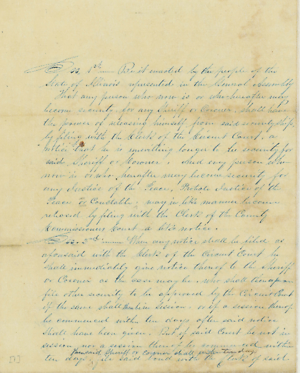 Be it enacted by the people of the
State of Illinois represented in the General Assembly
That any person who now is or who hereafter may
become security for any Sheriff or Coroner shall have
the power of releasing himself from such securityship
by filing with the Clerk of the Circuit Court, a
notice that he is unwilling longer to be security for
said Sheriff or Coroner. And any person who
now is or who hereafter may become security for
any Justice of the Peace, Probate Justice of the
Peace or Constable, may in like manner be
released by filing with the Clerk of the County
Commissioners Court a like notice.
When any notice shall be filed, as
aforesaid with the Clerk of the Circuit Court he
shall immediately give notice thereof to the Sheriff
or Coroner as the case may be who shall
file other security to be approved by the
of the same
be commenced within ten days after said notice
shall have been given. But if said Court be not in
session nor a session thereof be commenced within
ten days